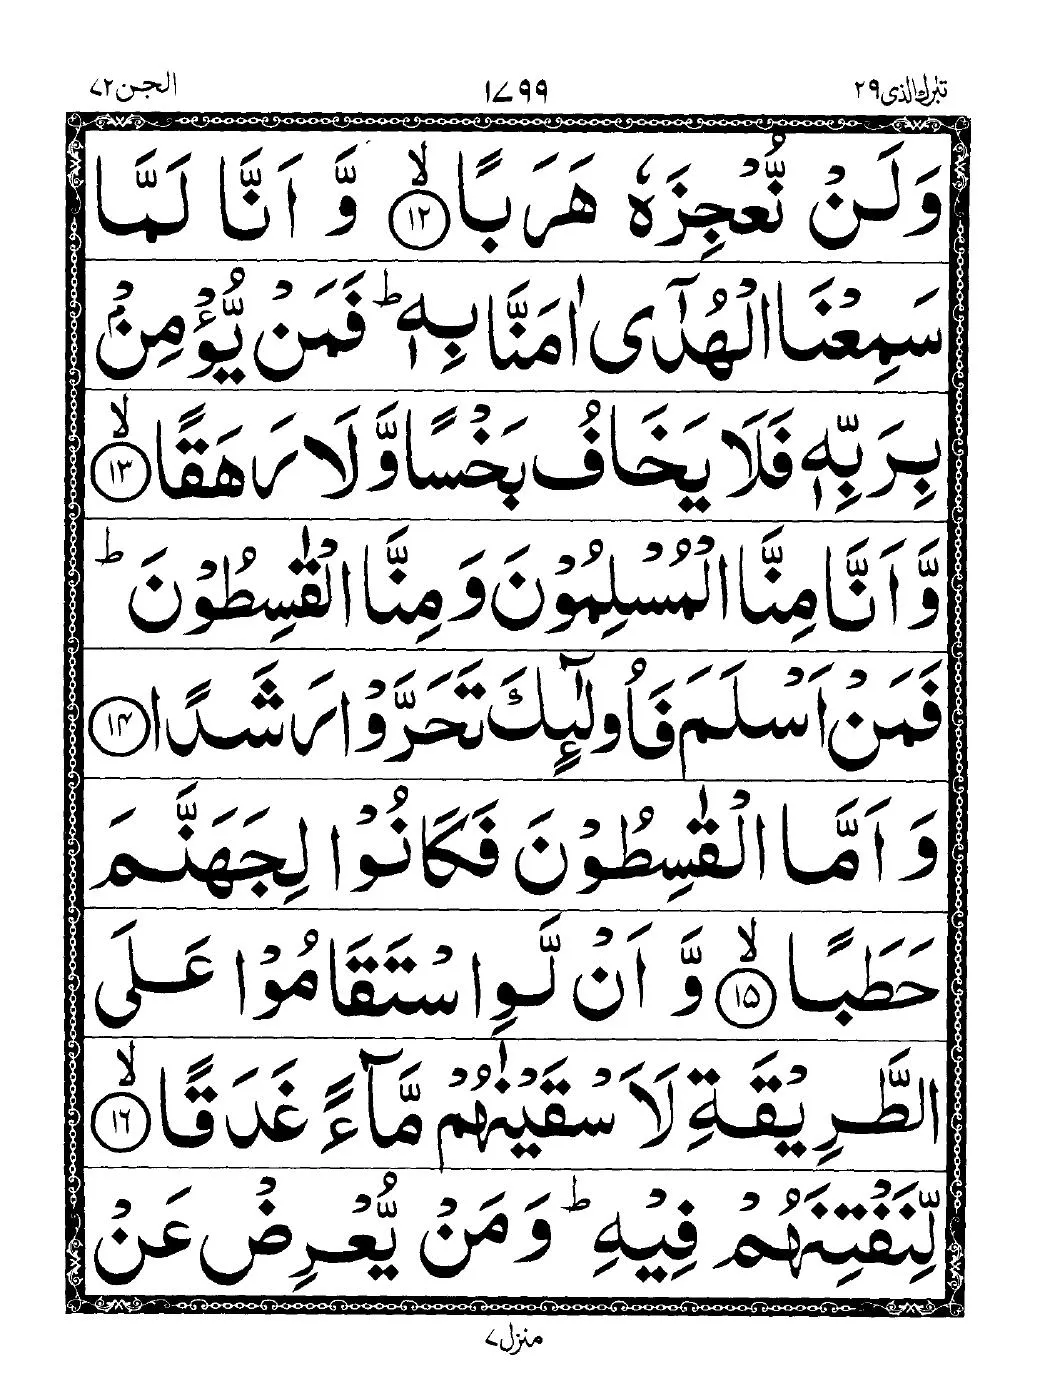 تبٰرك الذی ۲۹ ۱۷۹۹ الجن ۷۲
وَلَنْ نُّعْجِزَهٗ هَرَبًا ﴿۱۲﴾ۙ وَّ اَنَّا لَمَّا
سَمِعْنَا الْهُدٰۤى اٰمَنَّا بِهٖ ؕ فَمَنْ یُّؤْمِنْۢ
بِرَبِّهٖ فَلَا یَخَافُ بَخْسًا وَّلَا رَهَقًا ﴿۱۳﴾ۙ
وَّ اَنَّا مِنَّا الْمُسْلِمُوْنَ وَ مِنَّا الْقٰسِطُوْنَ ؕ
فَمَنْ اَسْلَمَ فَاُولٰٓىِٕكَ تَحَرَّوْا رَشَدًا ﴿۱۴﴾
وَ اَمَّا الْقٰسِطُوْنَ فَكَانُوْا لِجَهَنَّمَ
حَطَبًا ﴿۱۵﴾ۙ وَّ اَنْ لَّوِ اسْتَقَامُوْا عَلَى
الطَّرِیْقَةِ لَاَ سْقَیْنٰهُمْ مَّآءً غَدَقًا ﴿۱۶﴾ۙ
لِّنَفْتِنَهُمْ فِیْهِ ؕ وَ مَنْ یُّعْرِضْ عَنْ
منزل ۷